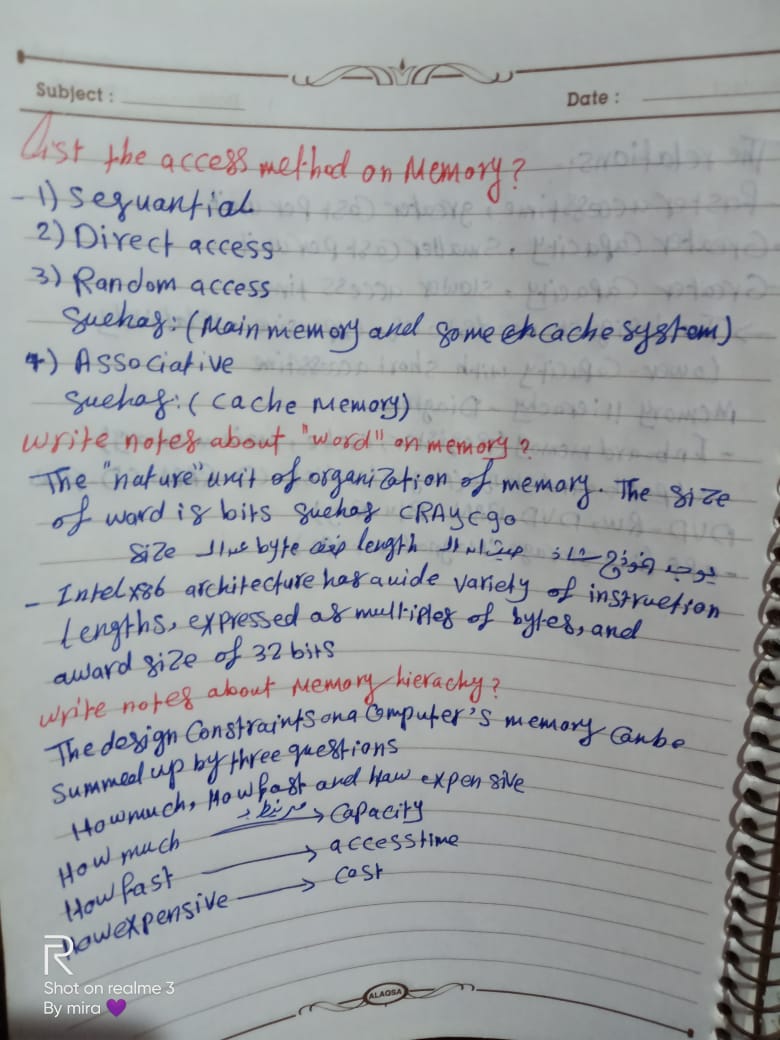 Subject :
Date :
List the access method on Memory?
- 1) Sequantial
2) Direct access
3) Random access
Suchas: (Main memory and some cache system)
4) Associative
Suchas: ( cache Memory)
Write notes about "word" on memory?
The "nature" unit of organization of memory. The size
of word is bits suchas CRAY C90
size byte length يوجد
- Intel x86 architecture has a wide variety of instruction
Lengths, expressed as multiples of bytes, and
aword size of 32 bits
Write notes about Memory hierachy?
The design Constraints on a Computer's memory Can be
Summed up by three questions
How much, How fast and How expensive
How much → Capacity
How fast → access time
How expensive → cost
ALAQSA
R
Shot on realme 3
By mira 💜